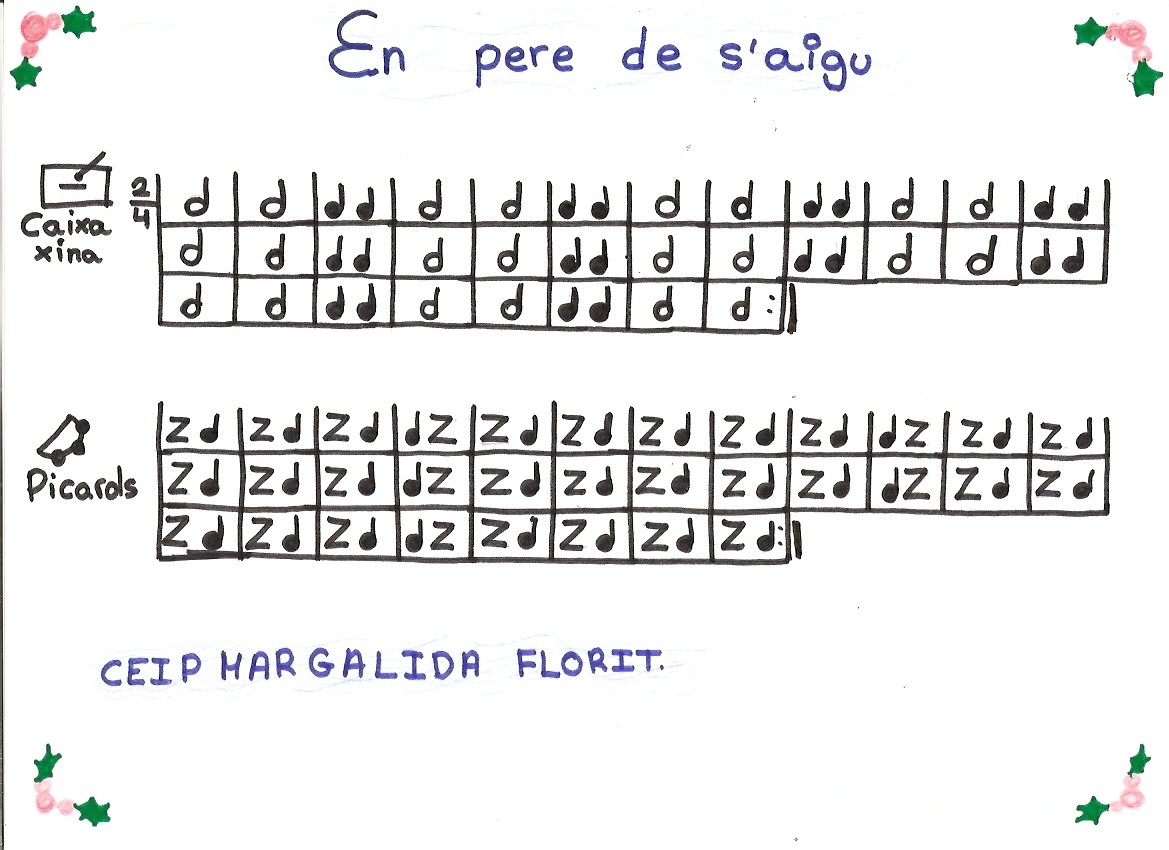 En pere de s'aigu
2
4
Caixa
xina
Z Z Z Z Z Z Z Z Z Z Z Z
Picarols
Z Z Z Z Z Z Z Z Z Z Z Z
Z Z Z Z Z Z Z Z
CEIP MARGALIDA FLORIT.